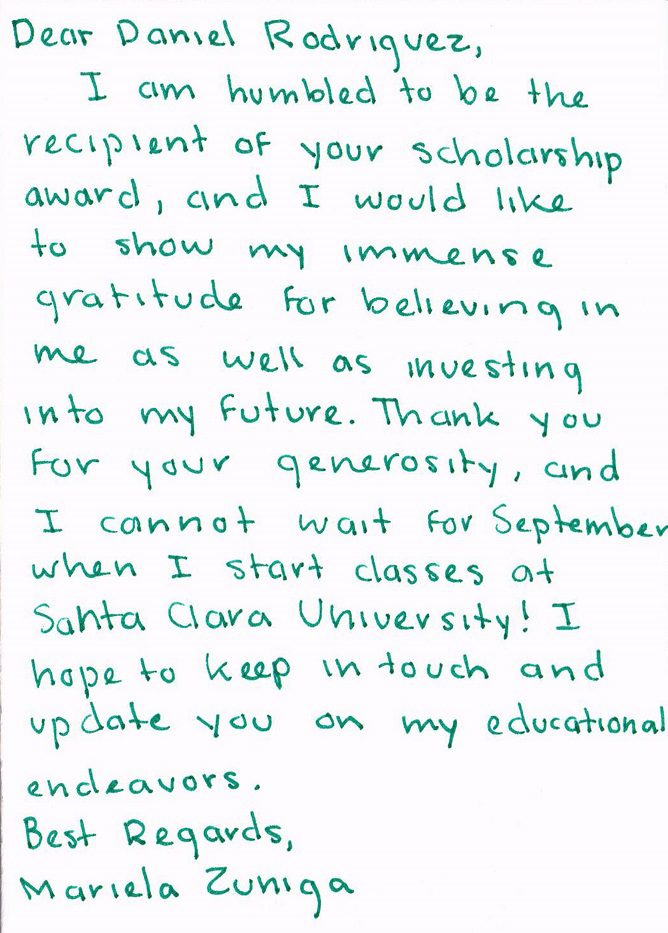 Dear Daniel Rodriguez,
I am humbled to be the
recipient of your scholarship
award, and I would like
to show my immense
gratitude for believing in
me as well as investing
into my future. Thank you
for your generosity, and
I cannot wait for September
when I start classes at
Santa Clara University! I
hope to keep in touch and
update you on my educational
endeavors.
Best Regards,
Mariela Zuniga